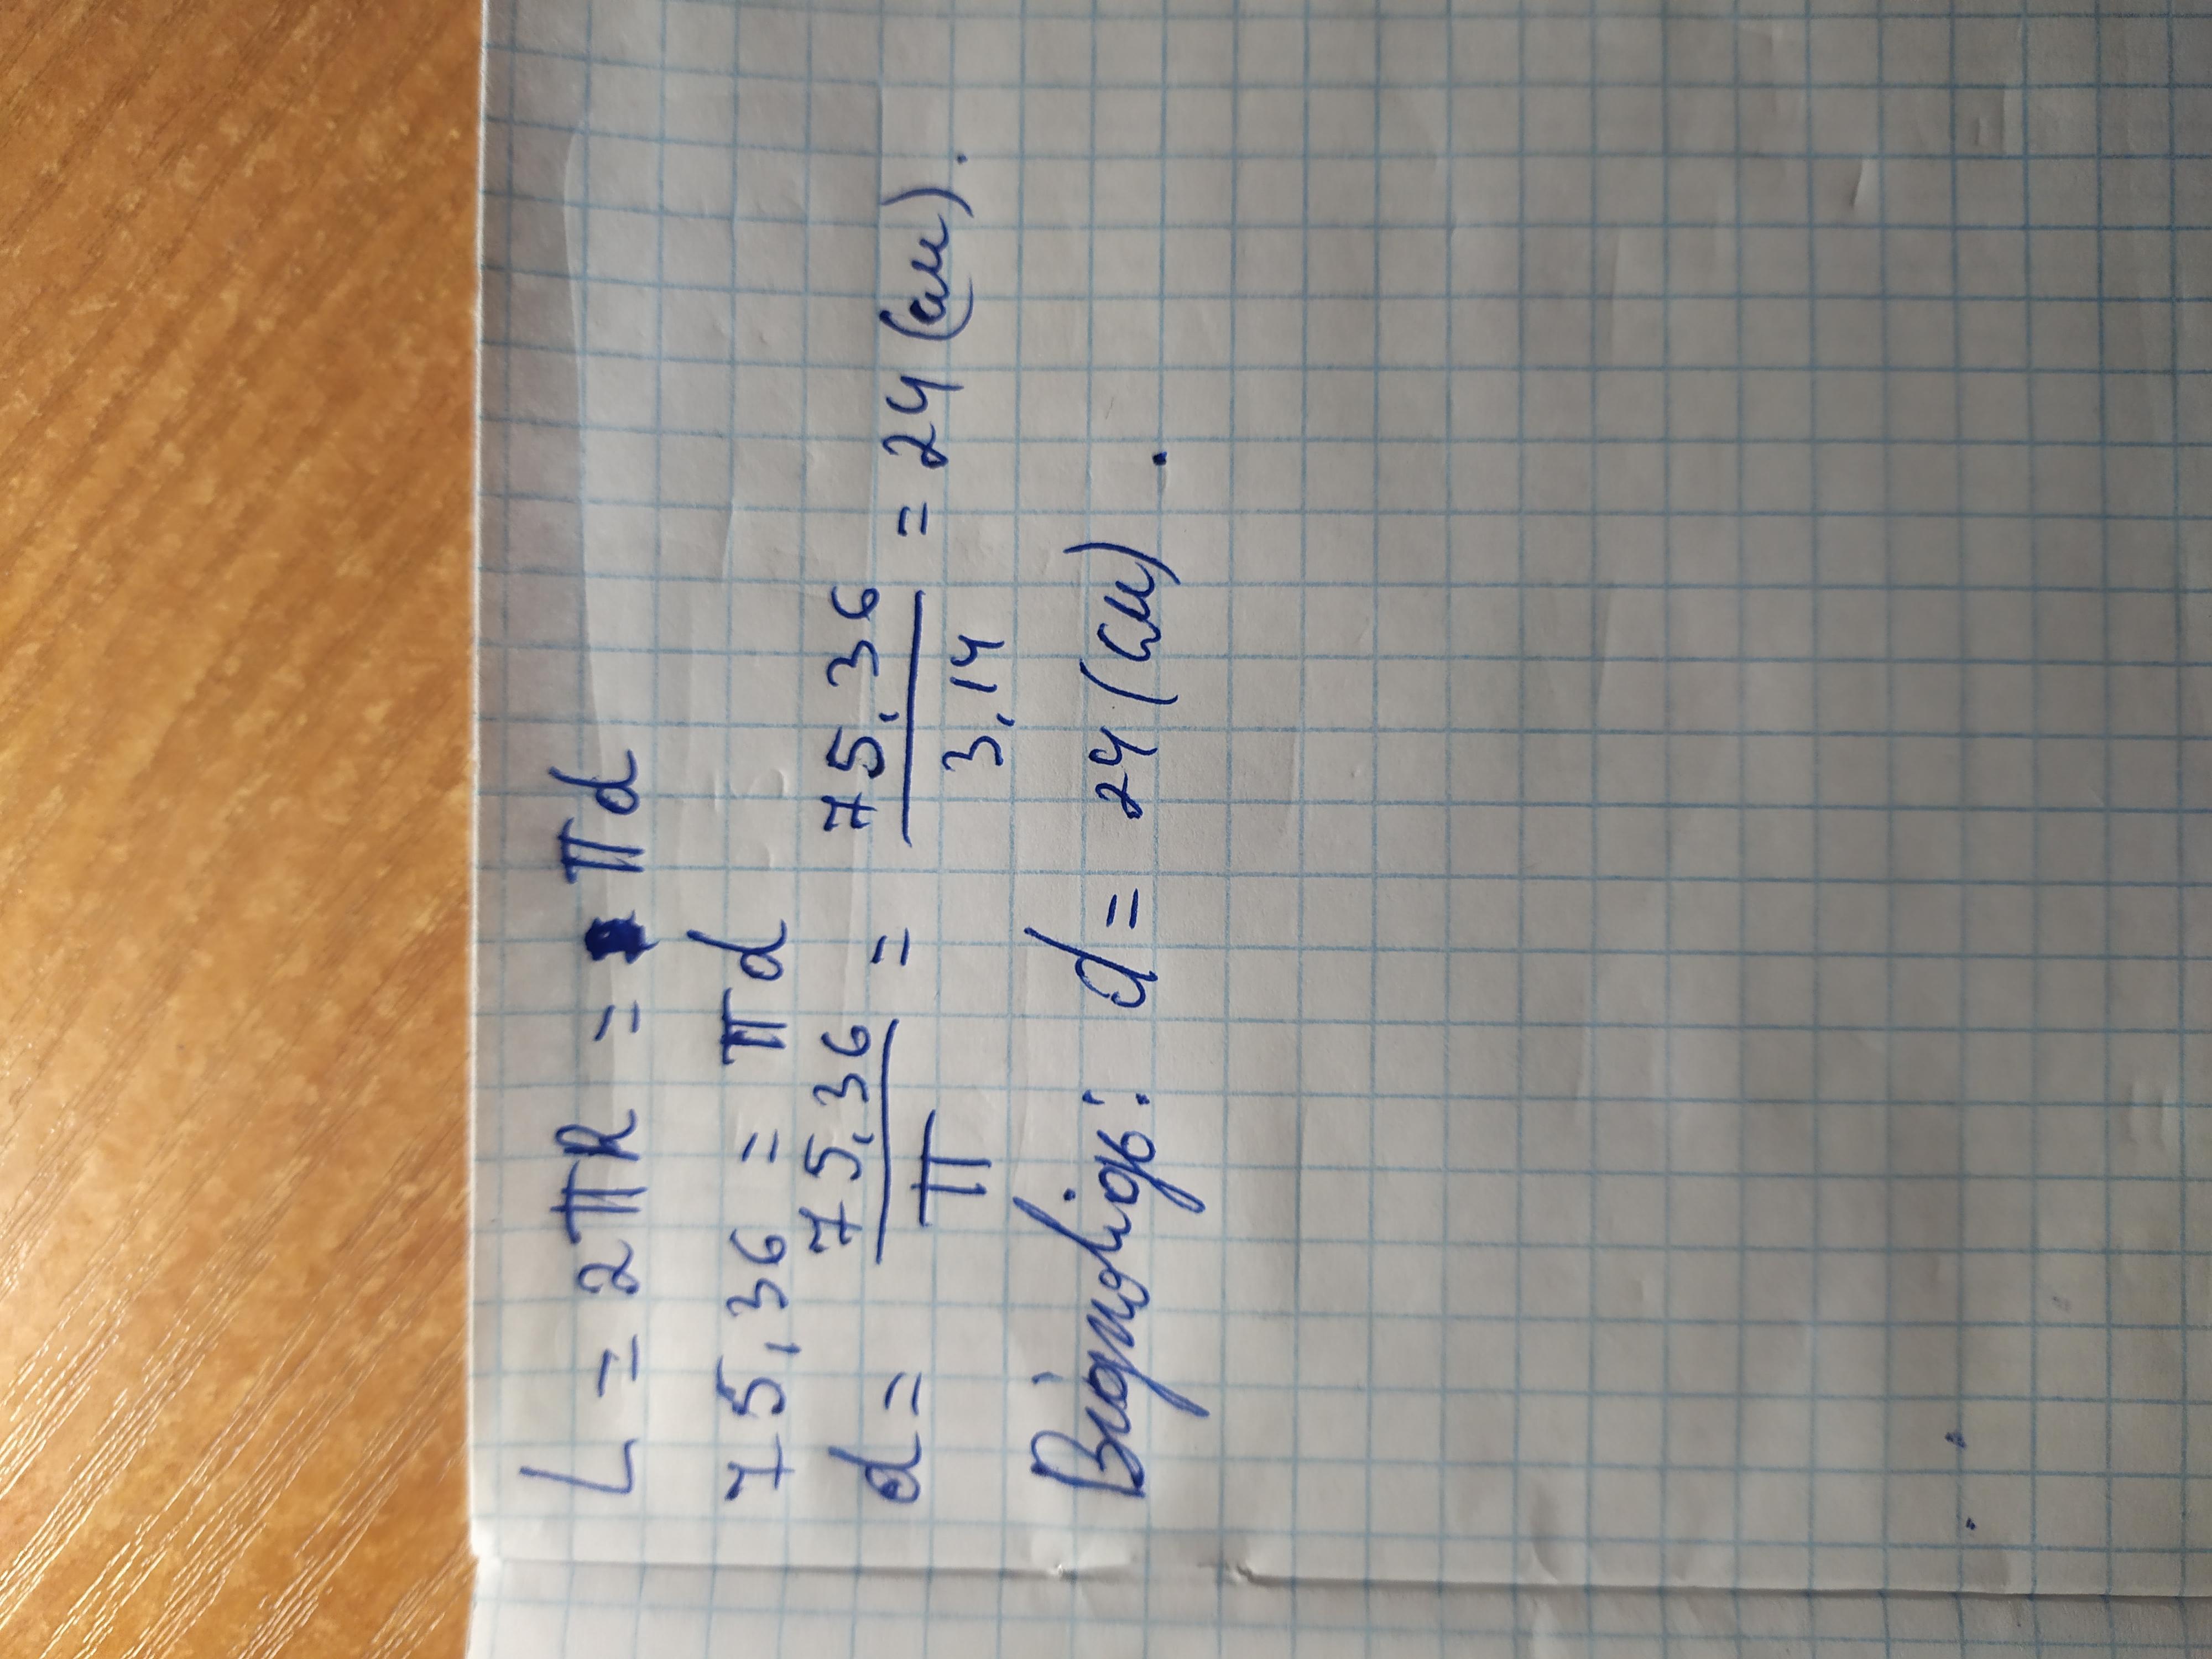 L = 2πR = πd
75,36 = πd
d = 75,36/π = 75,36/3,14 = 24 (см).
Відповідь: d = 24 (см).